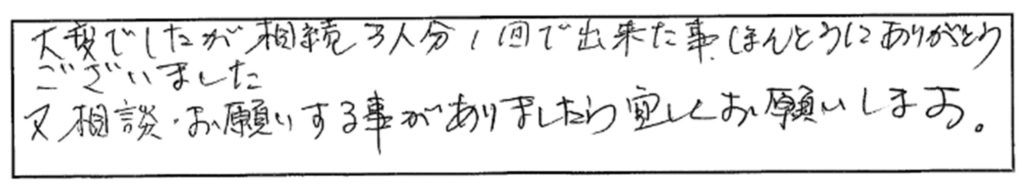 大変でしたが相続3人分1回で出来た事、ほんとうにありがとう
ございました
又相談・お願いする事がありましたら宜しくお願いします。